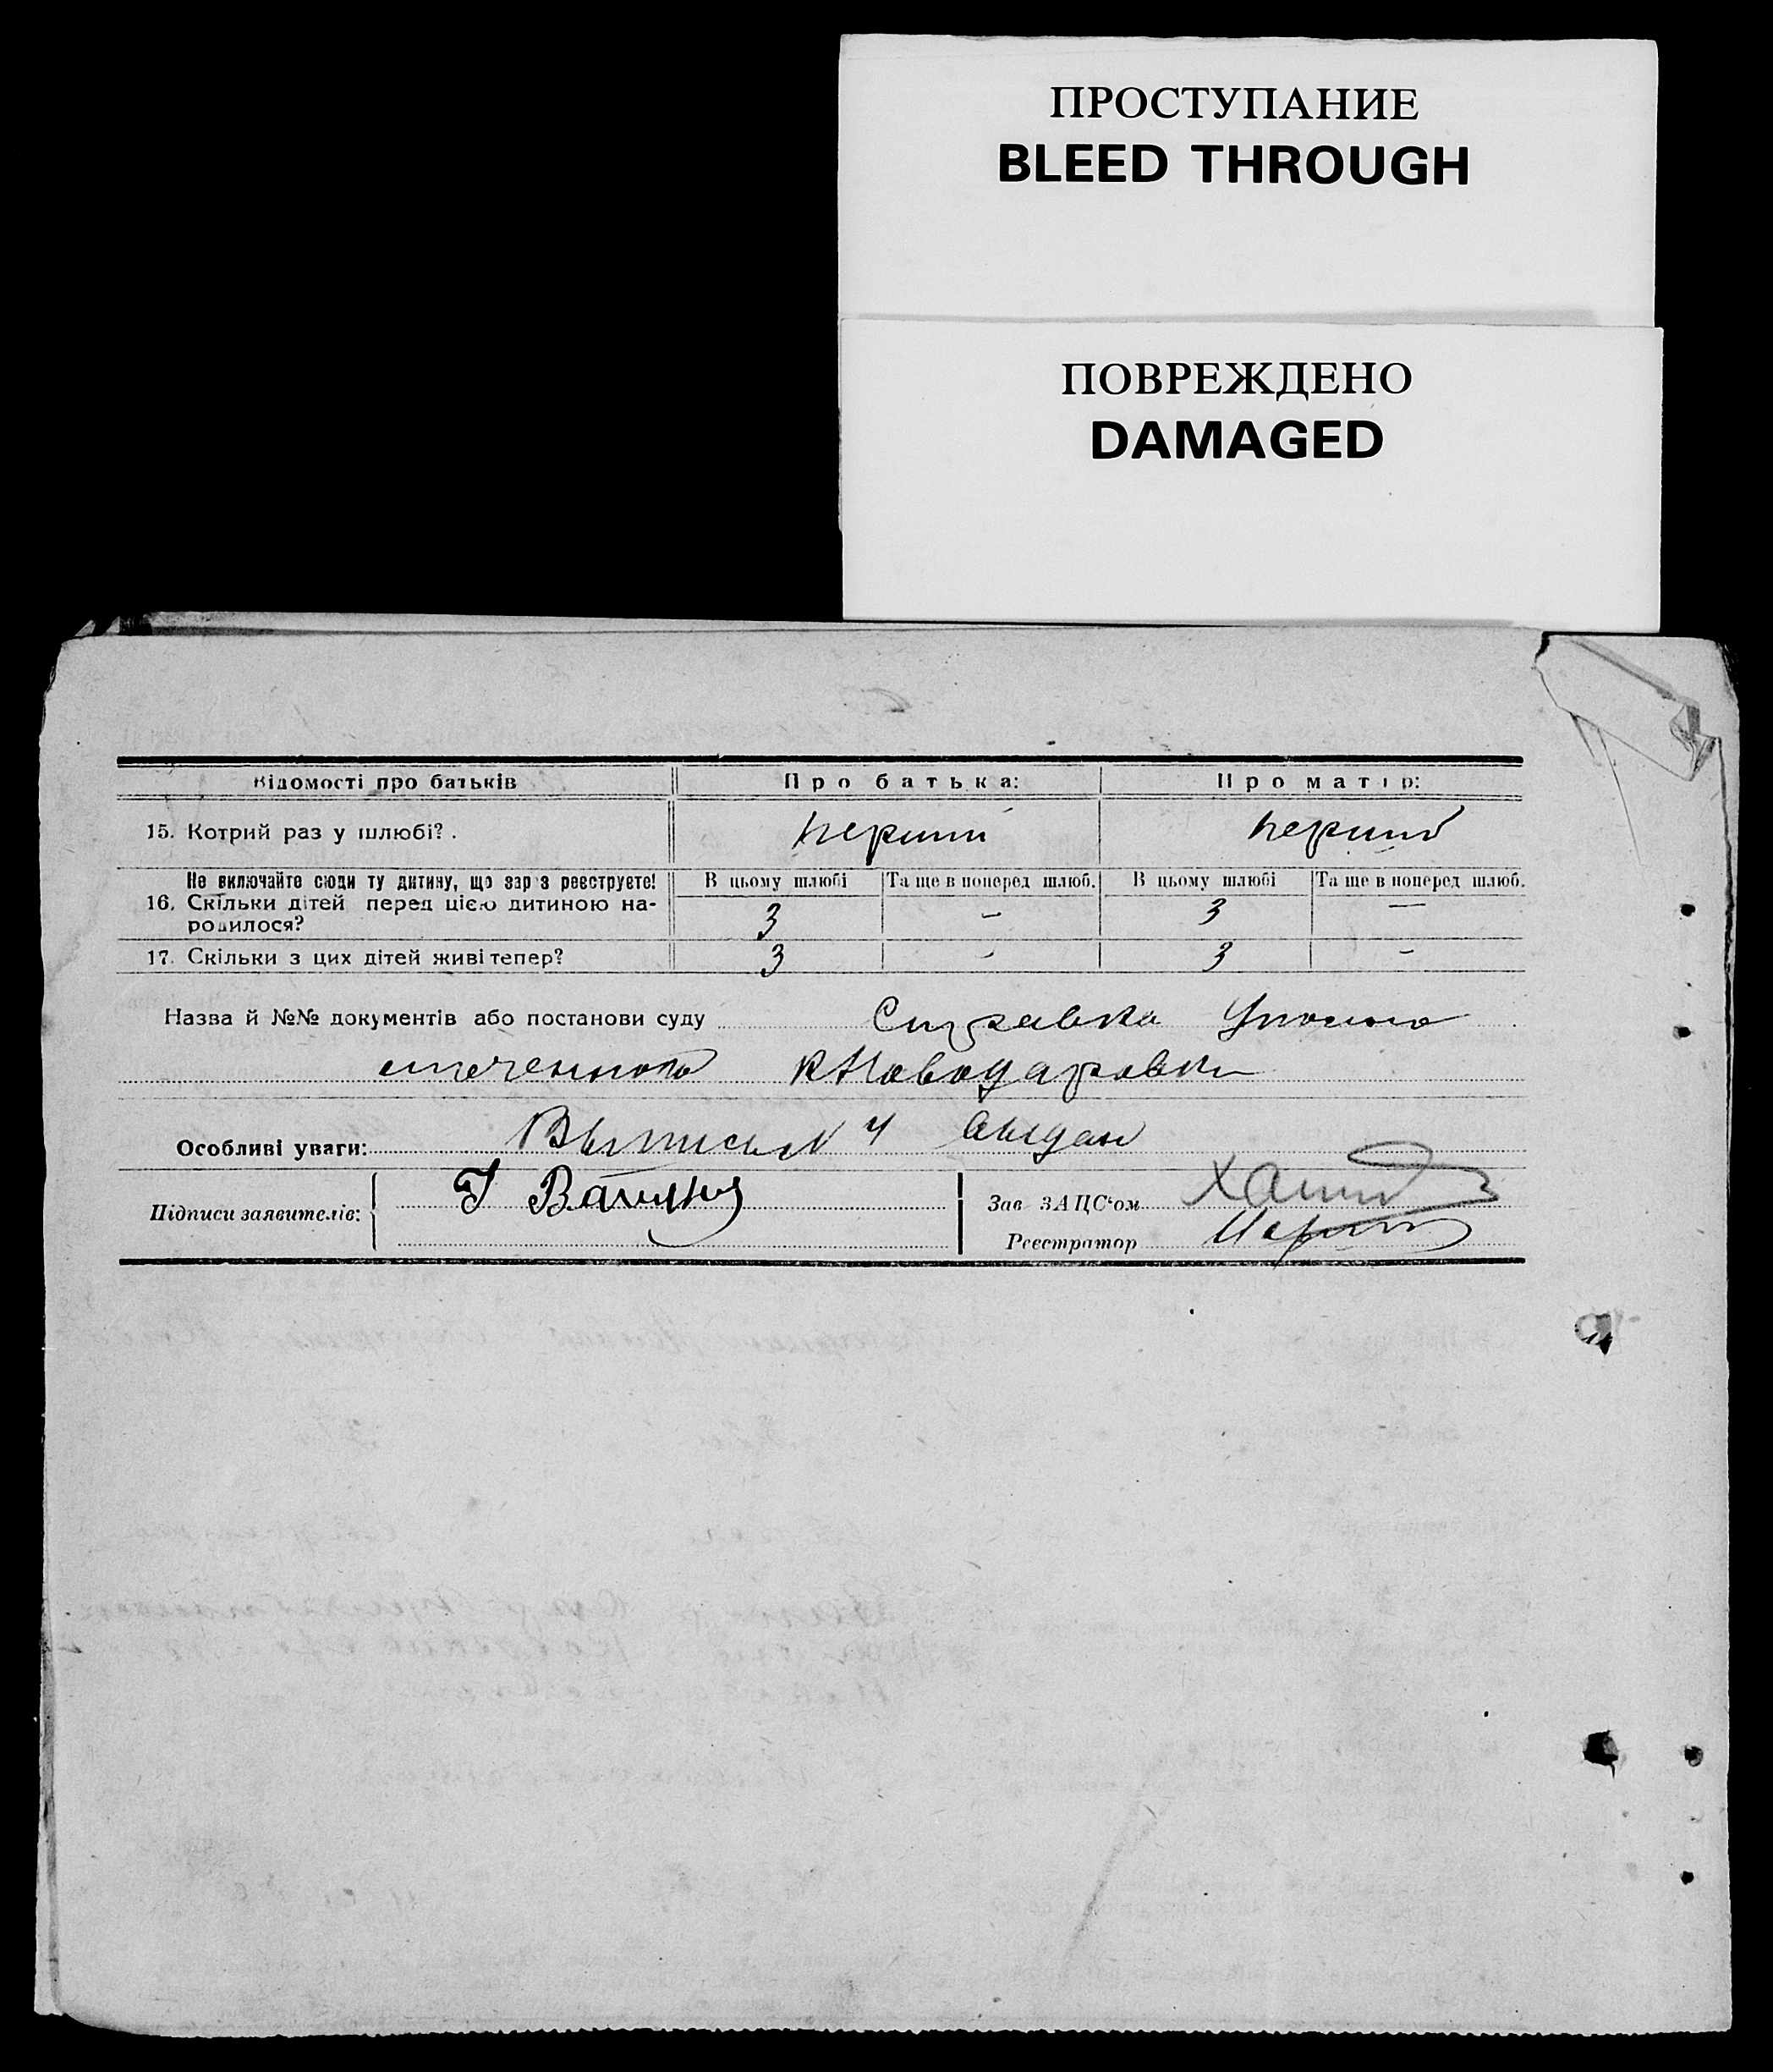 ПРОСТУПАНИЕ
BLEED THROUGH
ПОВРЕЖДЕНО
DAMAGED
Відомості про батьків Про батька: Про матір:
15. Котрий раз у шлюбі? . перший перший
Не включайте сюди ту дитину, що зараз реєструєте! В цьому шлюбі Та ще в поперед шлюб. В цьому шлюбі Та ще в поперед шлюб.
16. Скільки дітей перед цією дитиною на-
родилося? 3 – 3 —
17. Скільки з цих дітей живі тепер? 3 – 3 –
Назва й №№ документів або постанови суду Справка Уполно
моченного Новодаровки
Особливі уваги: Выпись N 4
Підписи заявителів:
Зав ЗАЦС‘ом
Реєстратор